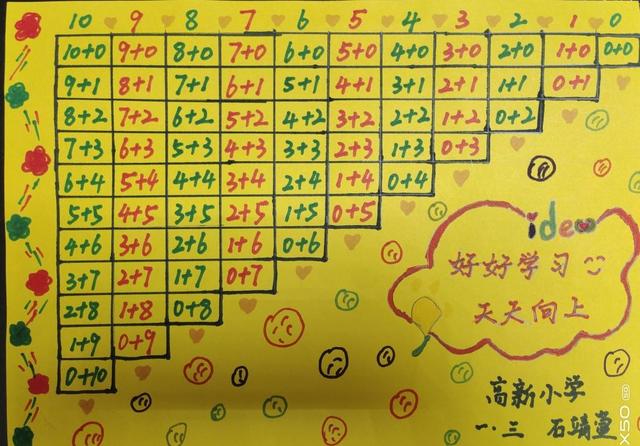 10 9 8 7 6 5 4 3 2 1 0
10+0 9+0 8+0 7+0 6+0 5+0 4+0 3+0 2+0 1+0 0+0
9+1 8+1 7+1 6+1 5+1 4+1 3+1 2+1 1+1 0+1
8+2 7+2 6+2 5+2 4+2 3+2 2+2 1+2 0+2
7+3 6+3 5+3 4+3 3+3 2+3 1+3 0+3
6+4 5+4 4+4 3+4 2+4 1+4 0+4
5+5 4+5 3+5 2+5 1+5 0+5
4+6 3+6 2+6 1+6 0+6
3+7 2+7 1+7 0+7
2+8 1+8 0+8
1+9 0+9
0+10
idea
好好学习
天天向上
高新小学
一.三 石靖
X50